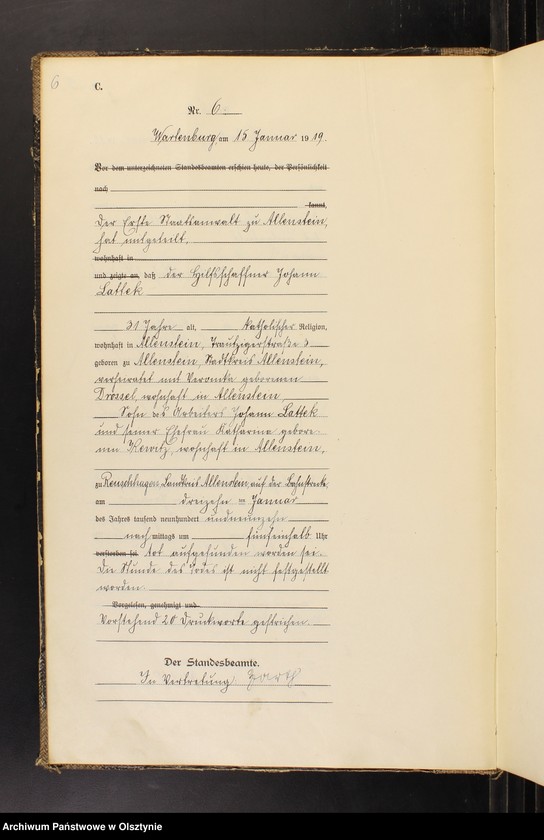 6
C.
Nr. 6
Wartenburg am 15 Januar 1919.
Vor dem unterzeichneten Standesbeamten erschien heute, der Persönlichkeit
nach
kannt,
Der Erste Staatsanwalt zu Allenstein,
hat mitgeteilt,
wohnhaft in
und zeigte an, daß der Hilfsschaffner Johann
Lattek
31 Jahre alt, katholischer Religion,
wohnhaft in Allenstein, Trautzigerstraße 3
geboren zu Allenstein, Stadtkreis Allenstein,
verheiratet mit Veronika geborenen
Drossel, wohnhaft in Allenstein,
Sohn des Arbeiters Johann Lattek
und seiner Ehefrau Katharina gebore-
nen Kewitz, wohnhaft in Allenstein,
zu Reuschhagen, Landkreis Allenstein, auf der Bahnstrecke
am dreizehn ten Januar
des Jahres tausend neunhundert und neunzehn
nach mittags um fünfeinhalb Uhr
verstorben sei tot aufgefunden worden sei.
Die Stunde des Todes ist nicht festgestellt
worden.
Vorgelesen, genehmigt und
Vorstehend 20 Druckworte gestrichen.
Der Standesbeamte.
In Vertretung
Archiwum Państwowe w Olsztynie